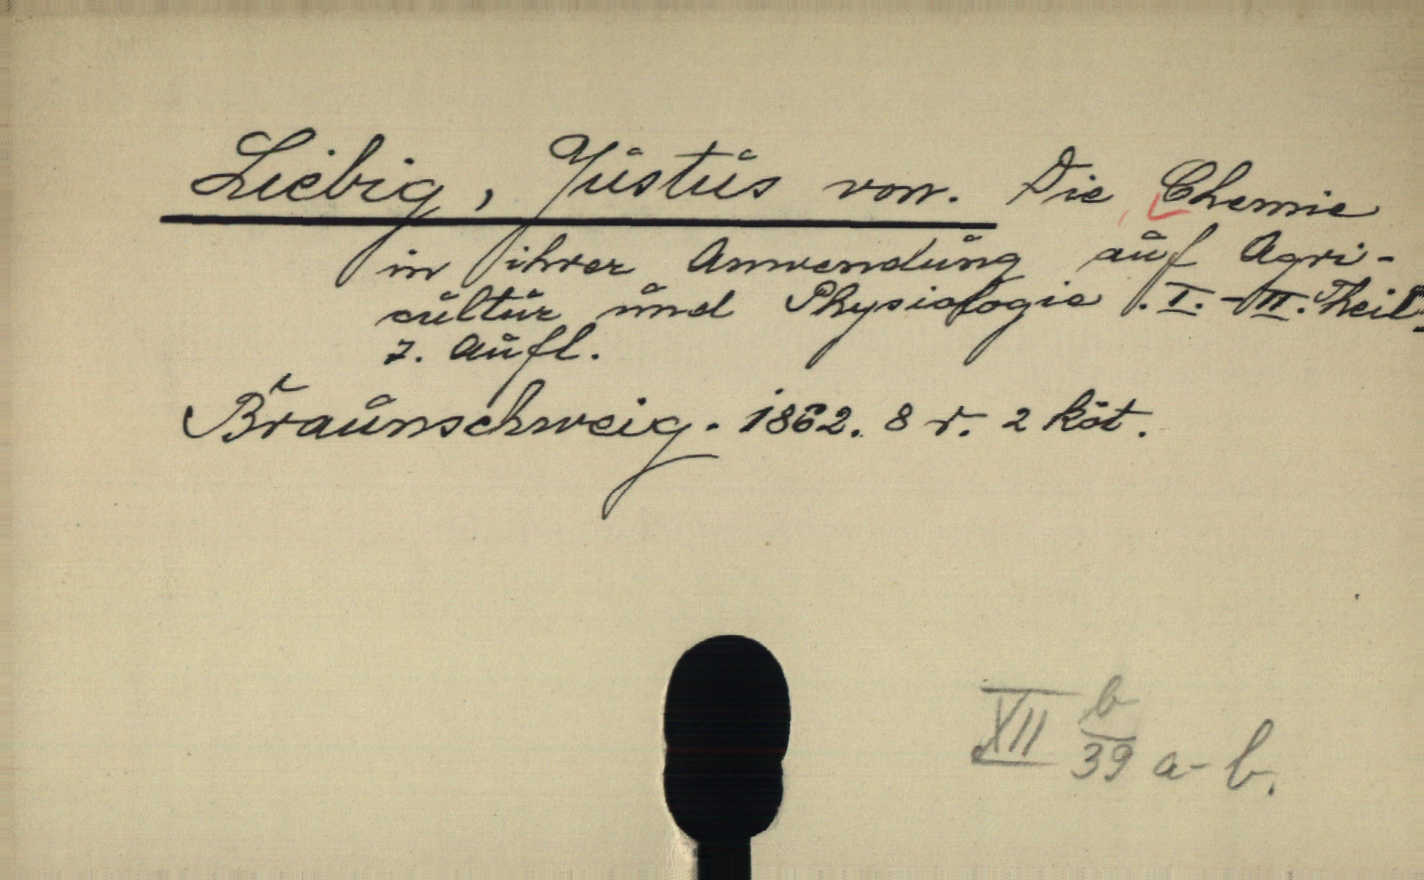 Liebig, Justus von. Die Chemie
in ihrer Anwendung auf Agri-
cultur und Physiologie. I.-II. Theil
7. Aufl.
Braunschweig. 1862. 8 r. 2 köt.
XII b/39 a-b.